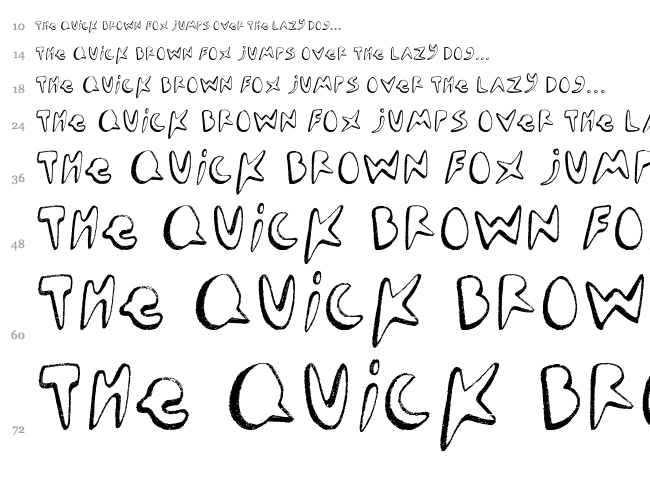 10 THe QUiCK BROWN FOX jUMPS OVeR THe LAZY DOg...
14 THe QUiCK BROWN FOX jUMPS OVeR THe LAZY DOg...
18 THe QUiCK BROWN FOX jUMPS OVeR THe LAZY DOg...
24 THe QUiCK BROWN FOX jUMPS OVeR THe LA
36 THe QUiCK BROWN FOX jUMP
48 THe QUiCK BROWN FO
60 THe QUiCK BROW
72 THe QUiCK BRO